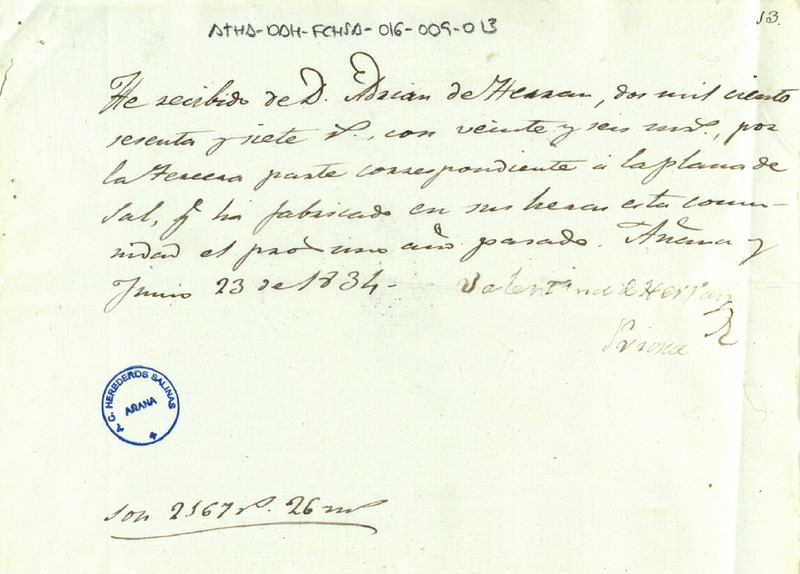 13.
ATHA-DAH-FCHSA-016-009-013
He recibido de D. Adrian de Herran, dos mil ciento
sesenta y siete rs., con veinte y seis ms., por
la tercera parte correspondiente á la plana de
sal, q ha fabricado en sus heras esta comu-
nidad el proximo año pasado. Añana y
Junio 23 de 1834-
Valentina de Herran
Priora
A. G. HEREDEROS SALINAS
AÑANA
Son 2167 rs. 26 ms